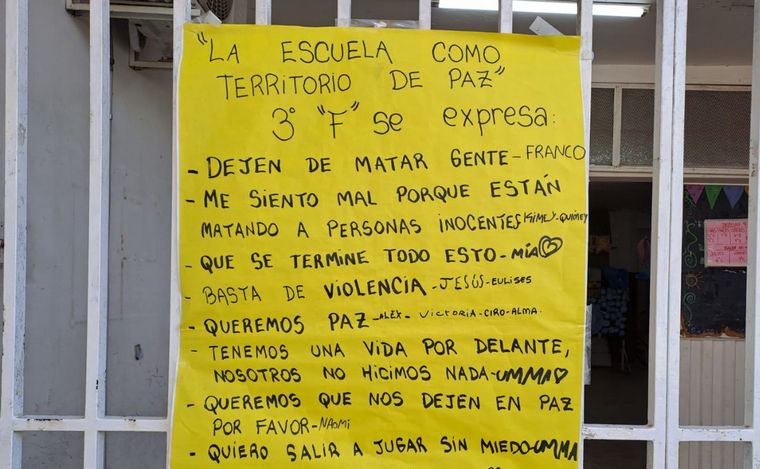 "LA ESCUELA COMO
TERRITORIO DE PAZ"
3° "F" se expresa:
- DEJEN DE MATAR GENTE - FRANCO
- ME SIENTO MAL PORQUE ESTÁN
MATANDO A PERSONAS INOCENTES KIMEY-QUIMEY
- QUE SE TERMINE TODO ESTO - MÍA
- BASTA DE VIOLENCIA - JESÚS - EULISES
- QUEREMOS PAZ - ALEX - VICTORIA - CIRO - ALMA.
- TENEMOS UNA VIDA POR DELANTE,
NOSOTROS NO HICIMOS NADA - UMMA
- QUEREMOS QUE NOS DEJEN EN PAZ
POR FAVOR - NAOMI
- QUIERO SALIR A JUGAR SIN MIEDO - UMMA